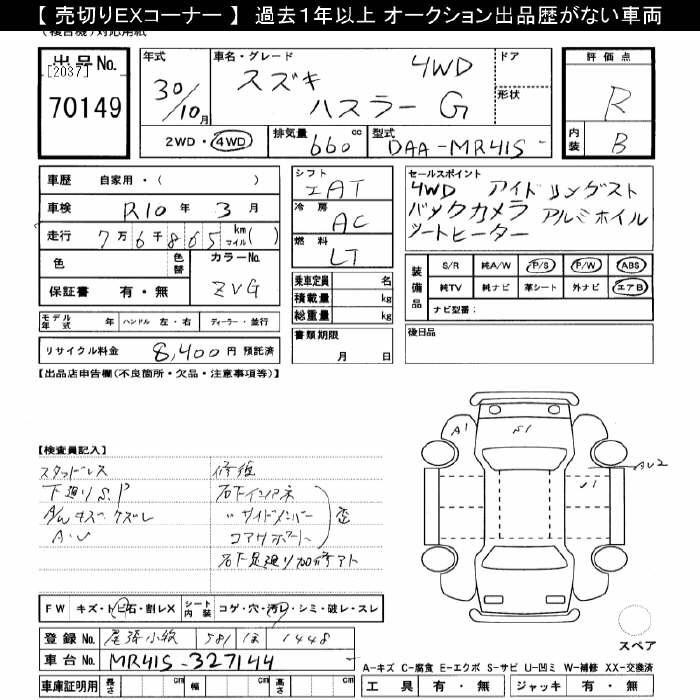 【 売切りEXコーナー 】 過去１年以上 オークション出品歴がない車両
出品No.
[2037]
70149
年式
30/10月
車名・グレード
スズキ 4WD
ハスラー G
ドア
形状
評価点
R
内装
B
2WD・4WD
排気量 660 cc
型式 DAA-MR41S
車歴 自家用・( )
車検 R10年 3月
走行 7万6千865 km マイル( )
色
色替
カラーNo.
ZVG
保証書 有・無
シフト
IAT
冷房
AC
燃料
LT
乗車定員 名
積載量 kg
総重量 kg
セールスポイント
4WD アイドリングスト
バックカメラ アルミホイル
シートヒーター
装備品
S/R 純A/W P/S P/W ABS
純TV 純ナビ 革シート 外ナビ エアB
ナビ型番：
モデル年式 年 ハンドル 左・右 ディーラー・並行
書類期限
月 日
後日品
リサイクル料金 8,400円 預託済
【出品店申告欄(不良箇所・欠品・注意事項等)】
【検査員記入】
スタッドレス
下廻りS.P
A/Wキズ・ケズレ
A・U
修復
右下インアネ
〃サイドメンバー
コアサポート
歪
右下足廻り加修アト
A1
S1
AU2
U1
FW キズ・トビ石・割レX シート内装 コゲ・穴・汚レ・シミ・破レ・スレ
登録No. 尾張小牧 581 ほ 1448
車台No. MR41S-327144
車庫証明用 長さ cm 幅 cm 高さ cm
スペア
A-キズ C-腐食 E-エクボ S-サビ U-凹ミ W-補修 XX-交換済
工具 有・無 ジャッキ 有・無